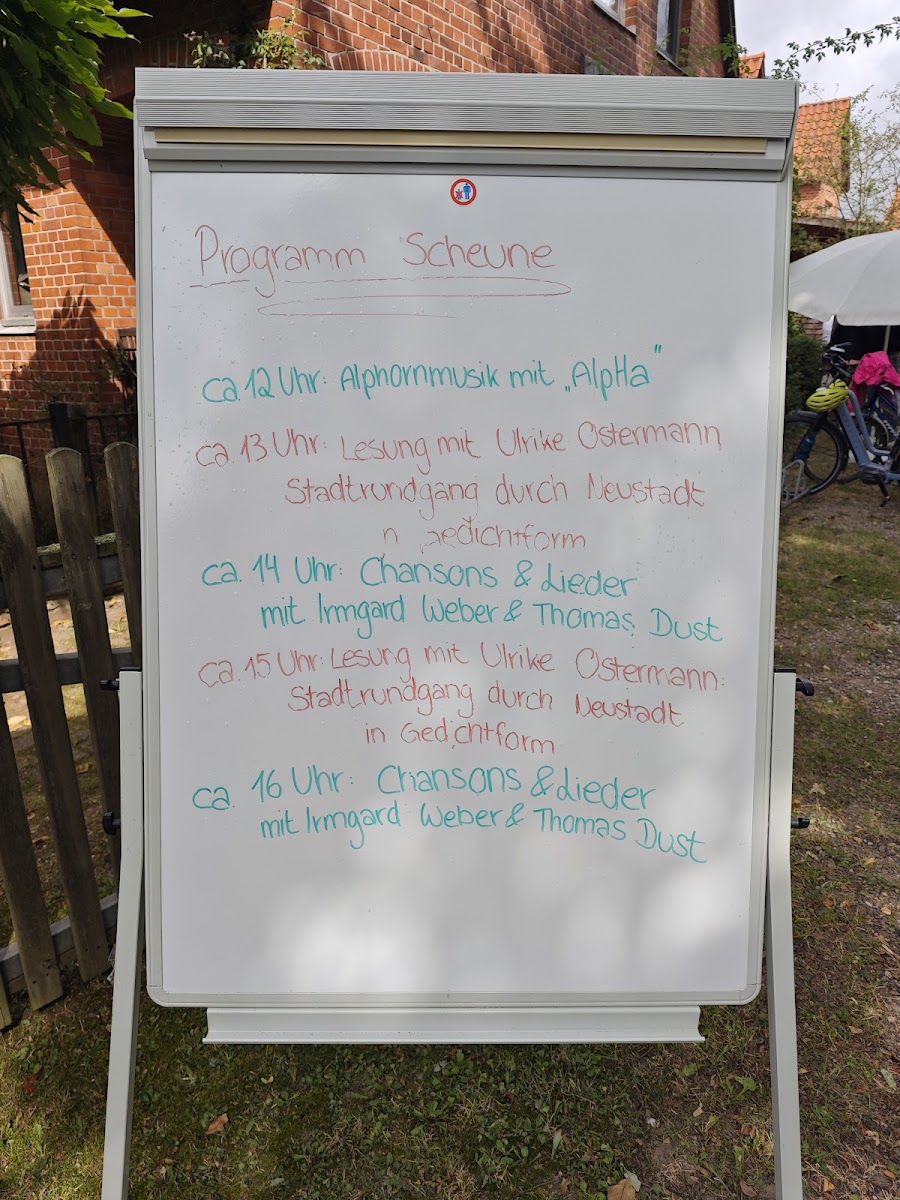 Programm Scheune
ca. 12 Uhr: Alphornmusik mit „AlpHa"
ca. 13 Uhr: Lesung mit Ulrike Ostermann
Stadtrundgang durch Neustadt
n gedichtform
ca. 14 Uhr: Chansons & Lieder
mit Irmgard Weber & Thomas Dust
ca. 15 Uhr: Lesung mit Ulrike Ostermann:
Stadtrundgang durch Neustadt
in Gedichtform
ca. 16 Uhr: Chansons & Lieder
mit Irmgard Weber & Thomas Dust